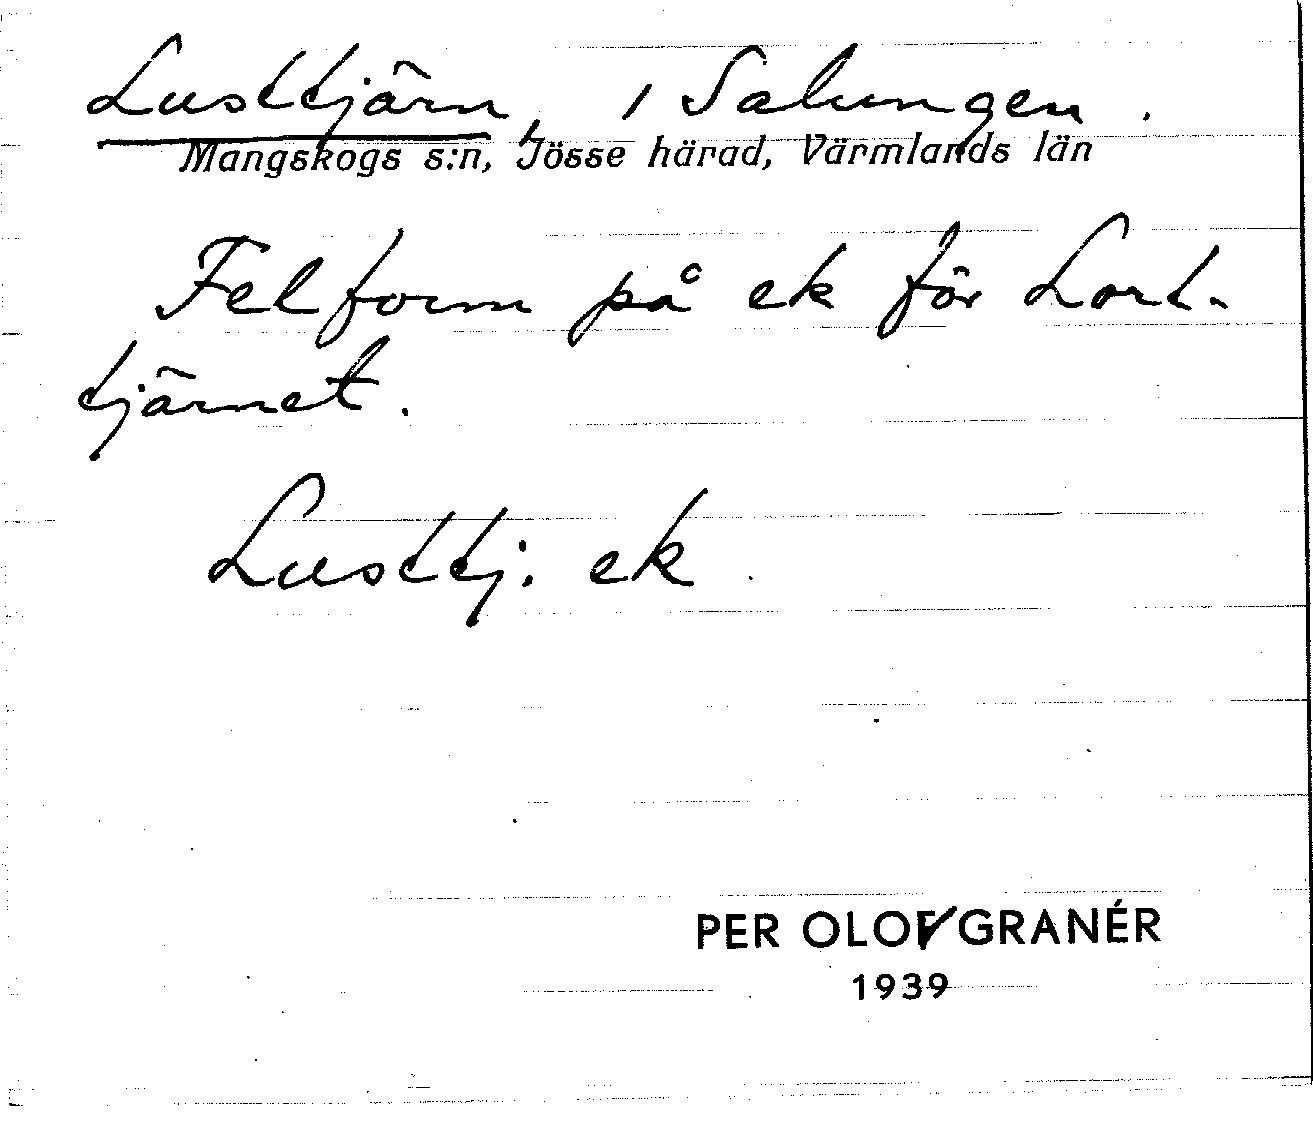 Lusttjärn, i Salungen.
Mangskogs s:n, Jösse härad, Värmlands län
Felform på ek för Lort-
tjärnet.
Lusttj. ek.
PER OLOV GRANÉR
1939